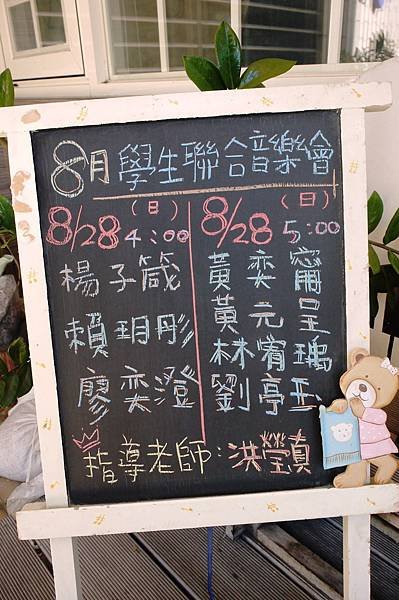 8月學生聯合音樂會
8/28(日)4:00
楊子箴
賴玥彤
廖奕澄
8/28(日)5:00
黃奕甯
黃元呈
林宥瑀
劉亭玉
指導老師:洪瑩真